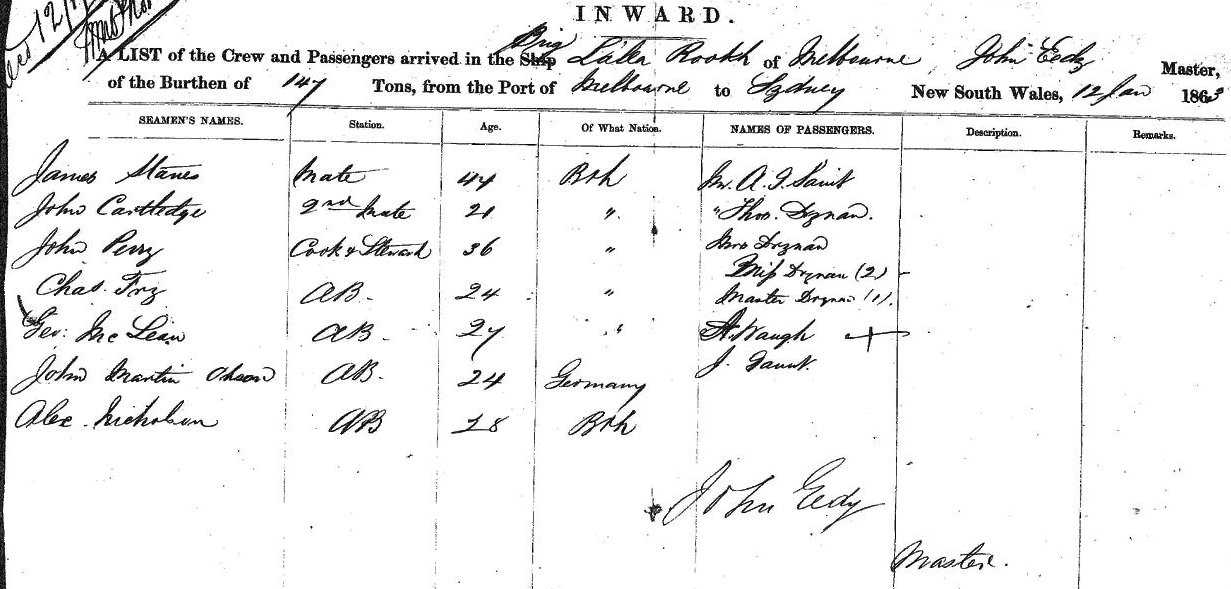 INWARD.
Brig
A LIST of the Crew and Passengers arrived in the Ship Lalla Rookh of Melbourne John Eedy Master,
of the Burthen of 147 Tons, from the Port of Melbourne to Sydney New South Wales, 12 Jan 1863
SEAMEN'S NAMES. Station. Age. Of What Nation. NAMES OF PASSENGERS. Description. Remarks.
James Stanes Mate 44 Bth Mr. A.
John Cartledge 2nd Mate 21 " " Thos. Drynan.
John Perry Cook & Steward 36 " Mrs Drynan
Miss Drynan (2)
Chas. Fry AB. 24 " Master Drynan (1).
Geo. McLean AB. 27 " A Waugh +
John Martin Olsson AB. 24 Germany J. Gaunt.
Alex. Nicholson AB 28 Bth
John Eedy
Master.